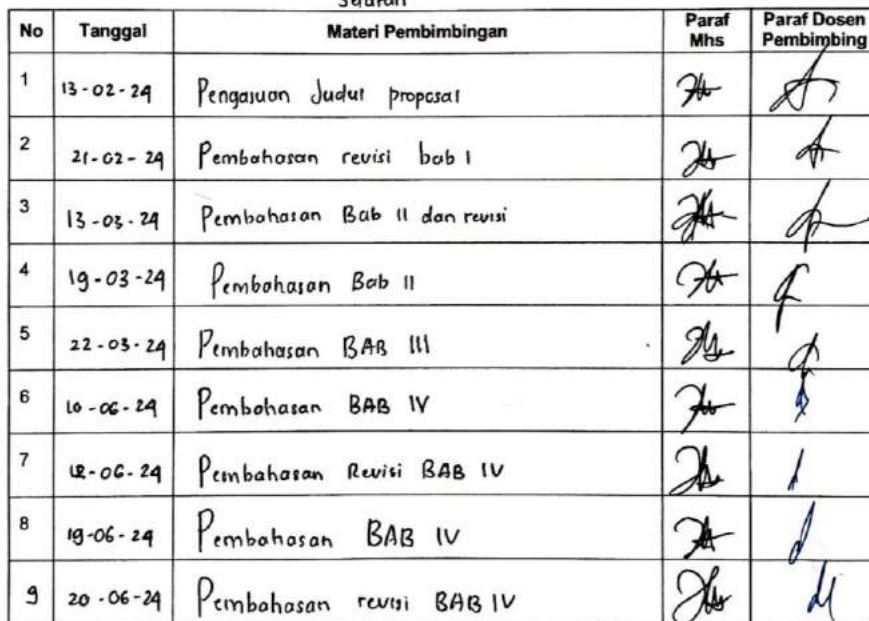 Selatan
No Tanggal Materi Pembimbingan Paraf Mhs Paraf Dosen Pembimbing
1 13-02-24 Pengajuan Judul proposal
2 21-02-24 Pembahasan revisi bab I
3 13-03-24 Pembahasan Bab II dan revisi
4 19-03-24 Pembahasan Bab II
5 22-03-24 Pembahasan BAB III
6 10-06-24 Pembahasan BAB IV
7 12-06-24 Pembahasan Revisi BAB IV
8 19-06-24 Pembahasan BAB IV
9 20-06-24 Pembahasan revisi BAB IV